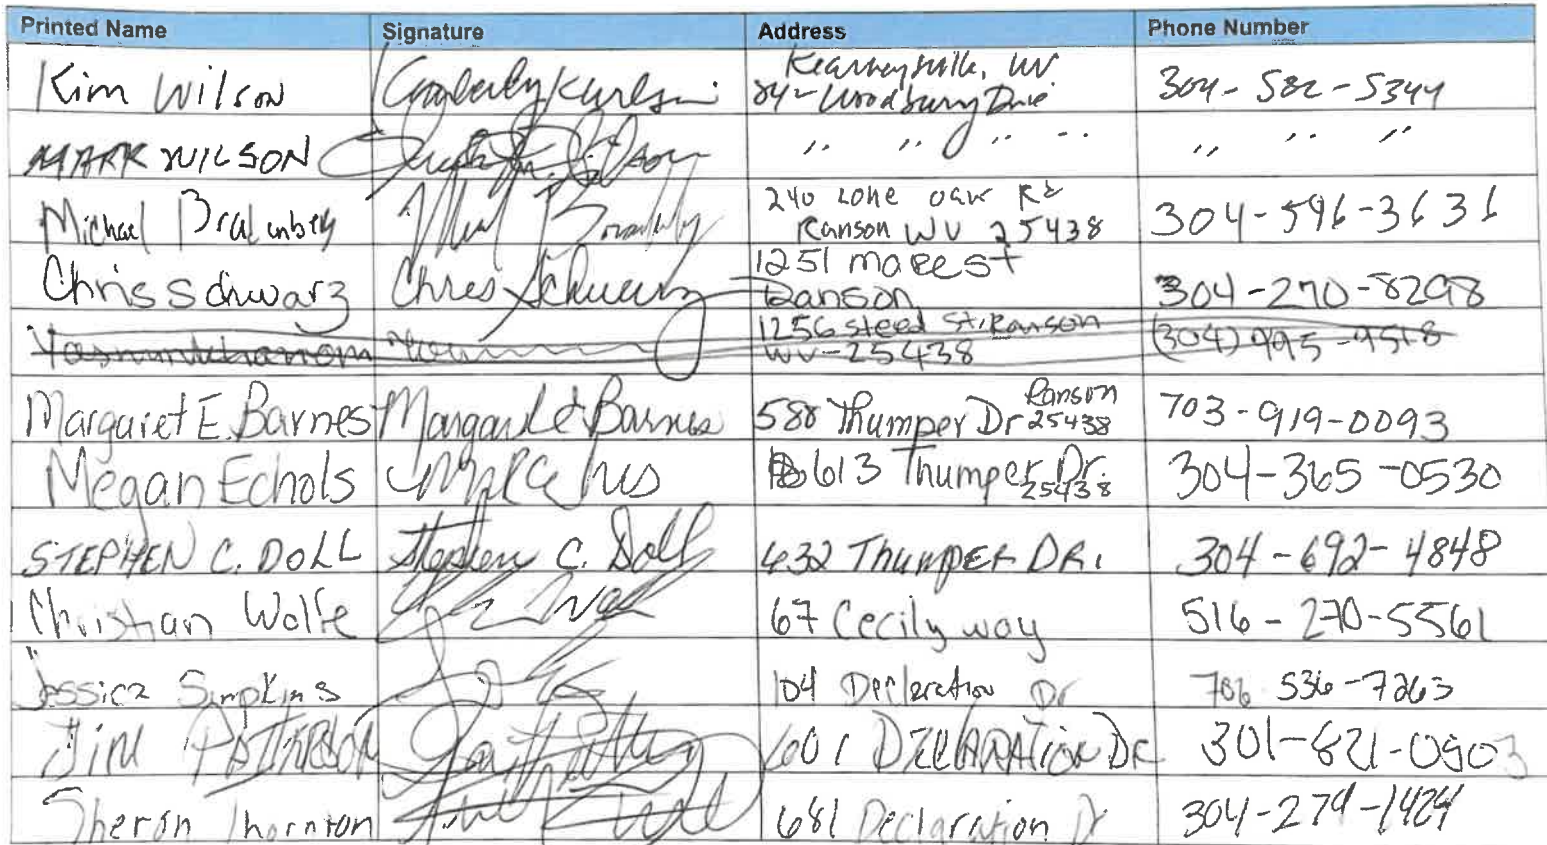 Printed Name Signature Address Phone Number
Kim Wilson Kearneysville, WV 304-582-5344
242 Woodbury Drive
MARK WILSON ,, ,, ,, ,, ,, ,, ,,
Michael 240 Lone Oak Rd 304-596-3636
Ranson WV 25438
Chris Schwarz Chris Schwarz 1251 Ranson 304-270-8298
1256 Steed St. Ranson (304) 995-9518
WV-25438
Margaret E. Barnes Margaret E Barnes 588 Thumper Dr Ranson 25438 703-919-0093
Megan Echols 613 Thumper Dr. 25438 304-365-0530
STEPHEN C. DOLL Stephen C. Doll 632 THUMPER DR. 304-692-4848
Christian Wolfe 67 Cecily way 516-270-5561
Jessica Simpkins 104 Declaration Dr 706 536-7263
Jim DECLARATION DR 301-821-0903
Theron Thornton 681 Declaration Dr 304-279-1424